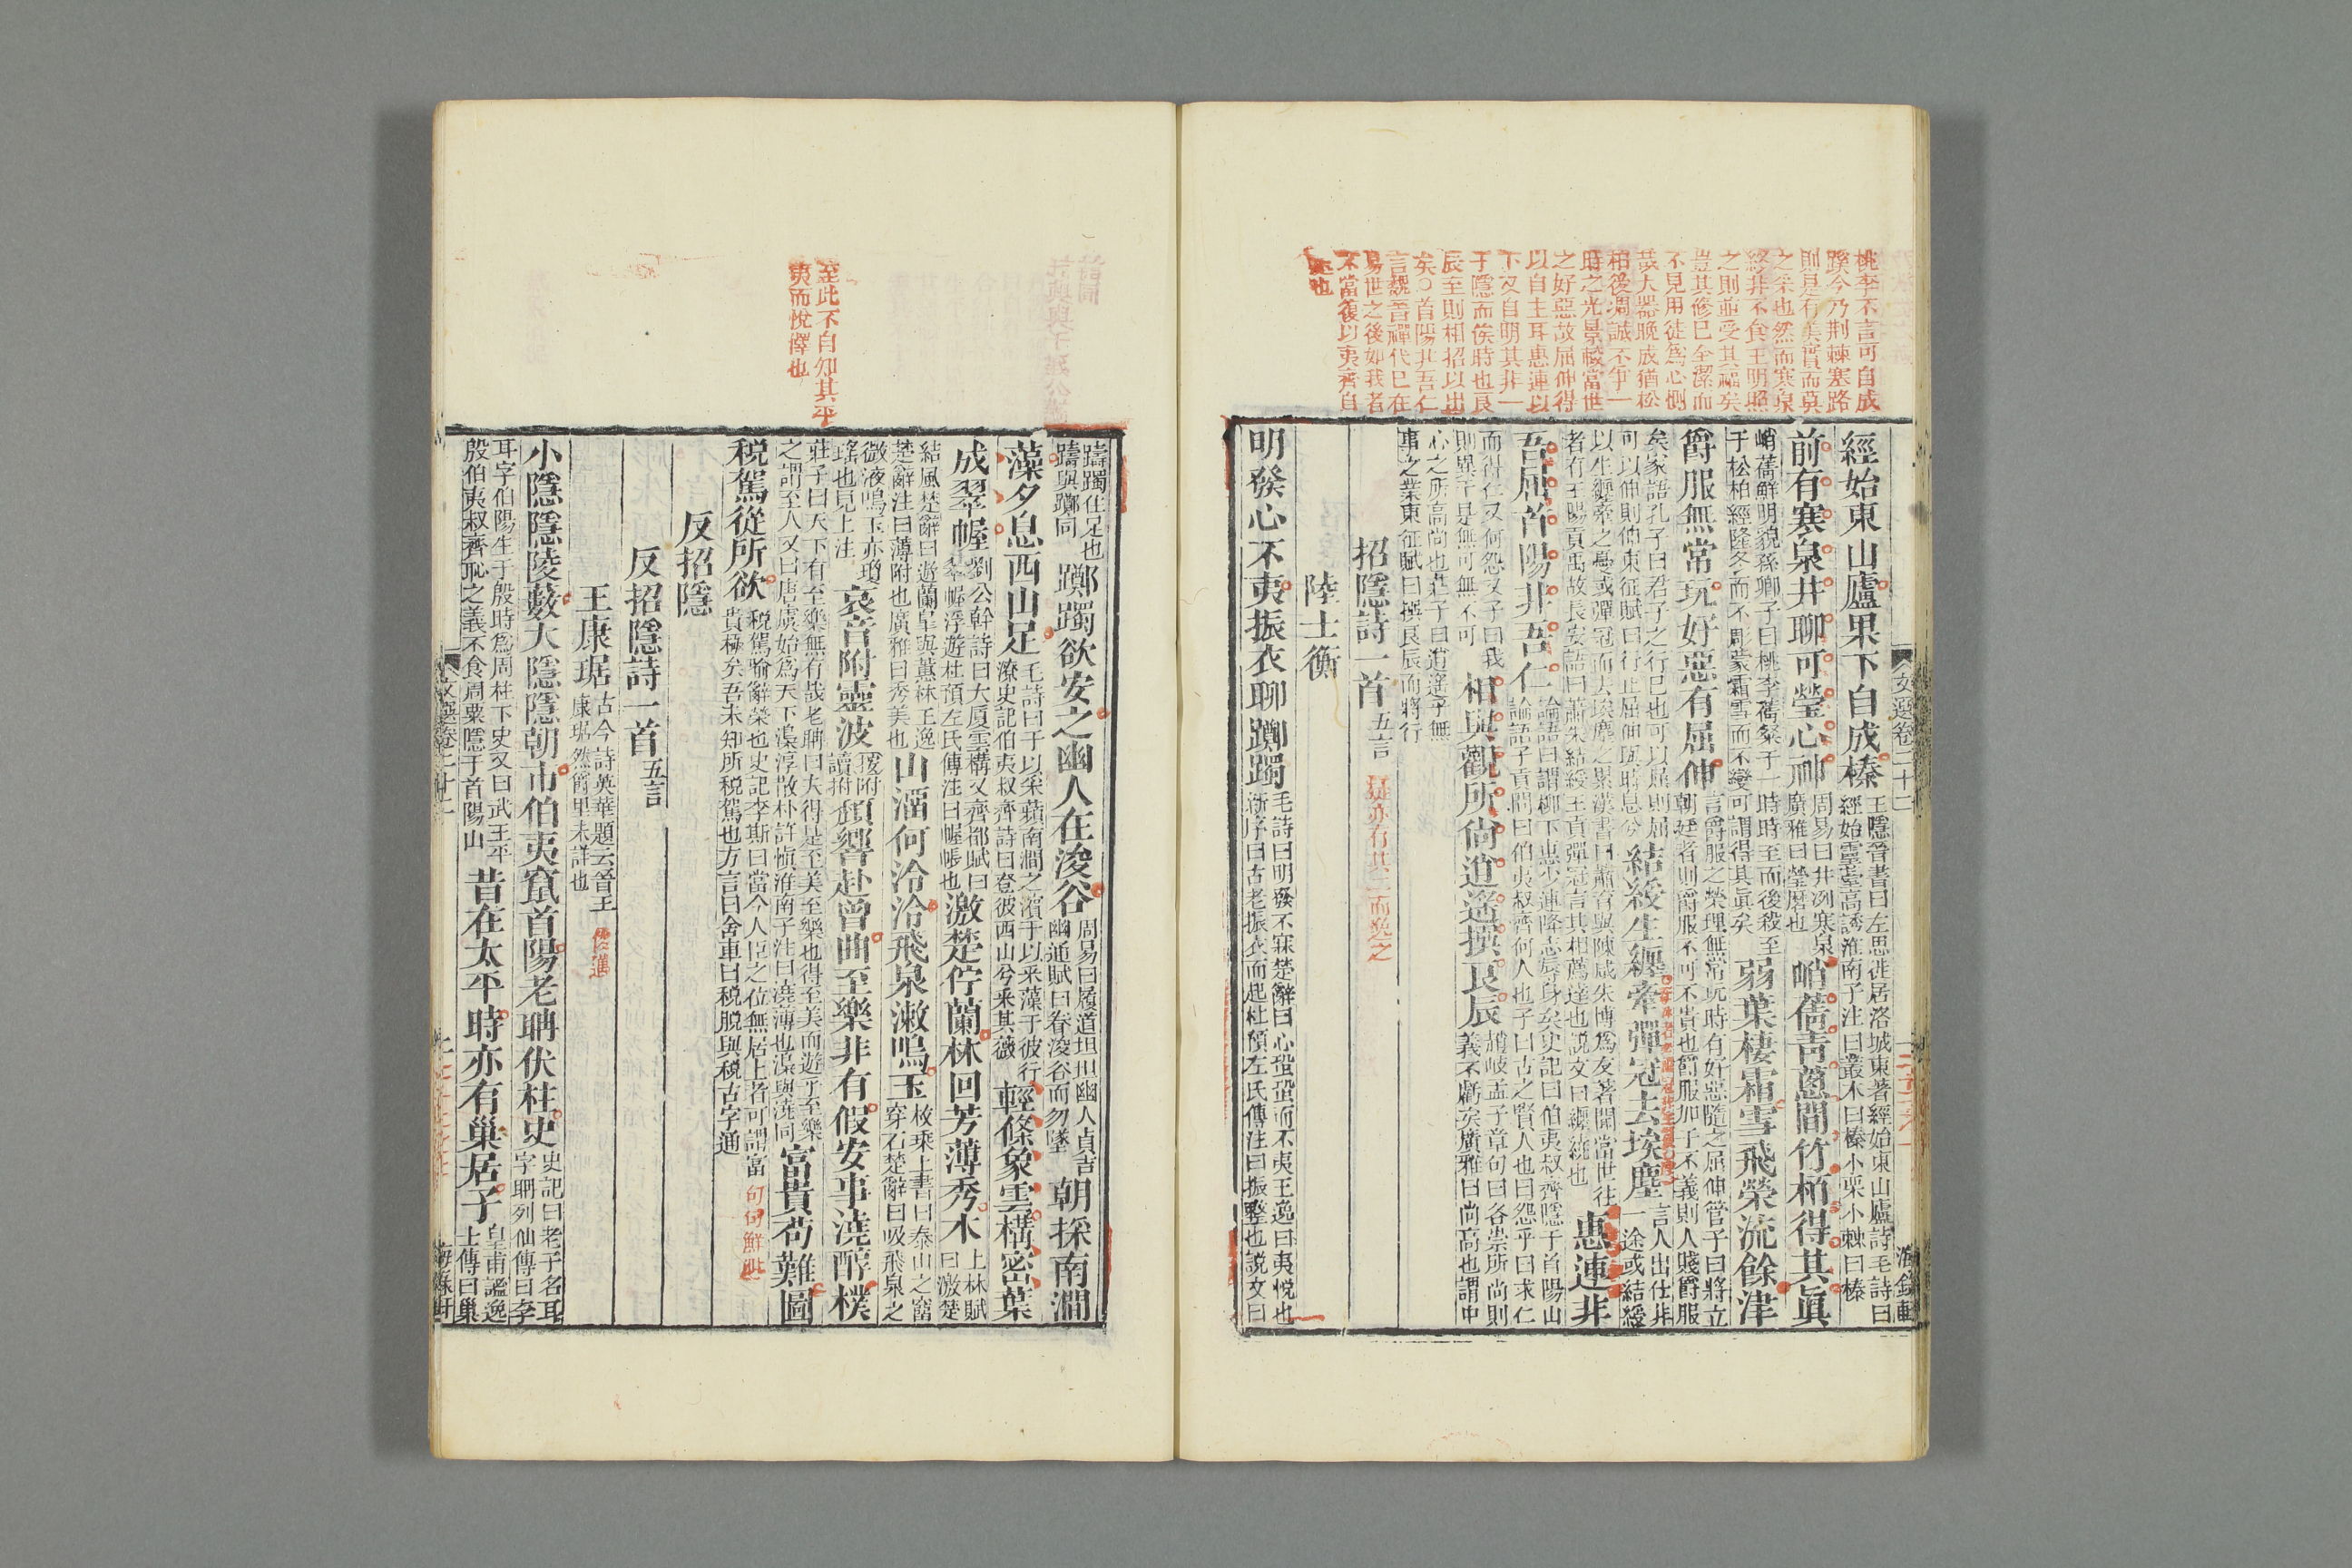 桃李不言可自成
蹊今乃荆棘塞路
則是有美實而莫
之采也然而寒泉
終非不食王明照
之則並受其福矣
豈其修已全潔而
不見用徒爲心惻
哉大器晚成猶松
栢後凋誠不爭一
時之光景較當世
之好惡故屈伸得
以自主耳惠連以
下又自明其非一
于隱而俟時也良
辰至則相招以出
矣○首陽非吾仁
言魏晉禪代已在
易世之後如我者
不當復以夷齊自
文選卷二十二
海錄軒
經始東山廬果下自成榛王隱晉書曰左思徙居洛城東著經始東山廬詩毛詩曰經始靈臺高誘淮南子注曰叢木曰榛小栗小棘曰榛
前有寒泉井聊可瑩心神周易曰井冽寒泉廣雅曰瑩磨也峭蒨青蔥間竹栢得其眞
峭蒨鮮明貌孫卿子曰桃李蒨粲于一時時至而後殺至于松柏經隆冬而不彫蒙霜雪而不變可謂得其眞矣弱葉棲霜雪飛榮流餘津
爵服無常玩好惡有屈伸言爵服之榮理無常玩時有好惡隨之屈伸管子曰將立朝廷者則爵服不可不貴也爵服加于不義則人賤爵服
矣家語孔子曰君子之行已也可以屈則屈可以伸則伸東征賦曰行止屈伸與時息兮結綬生纏牽彈冠去埃塵言人出仕非一途或結綬
以生纏牽之憂或彈冠而去埃塵之累漢書曰蕭育與陳咸朱博爲友著聞當世往者有王陽貢禹故長安語曰蕭朱結綬王貢彈冠言其相薦達也說文曰纏繞也惠連非
吾屈首陽非吾仁論語曰謂柳下惠少連降志辱身矣史記曰伯夷叔齊隱于首陽山論語子貢問曰伯夷叔齊何人也子曰古之賢人也曰怨乎曰求仁
而得仁又何怨又子曰我則異于是無可無不可相與觀所尚逍遙撰良辰趙岐孟子章句曰各崇所尚則義不虧矣廣雅曰尚高也謂中
心之所高尚也莊子曰逍遙乎無事之業東征賦曰撰良辰而將行
招隱詩一首五言
陸士衡
明發心不夷振衣聊躑躅毛詩曰明發不寐楚辭曰心蛩蛩而不夷王逸曰夷悅也新序曰古老振衣而起杜預左氏傳注曰振整也說文曰
至此不自知其平
夷而悅懌也
躊躅住足也躊與躑同躑躅欲安之幽人在浚谷周易曰履道坦坦幽人貞吉幽通賦曰眷浚谷而勿墜朝採南澗
藻夕息西山足毛詩曰于以采蘋南澗之濱于以采藻于彼行潦史記伯夷叔齊詩曰登彼西山兮采其薇輕條象雲構密葉
成翠幄劉公幹詩曰大厦雲構又齊都賦曰翠幄浮遊杜預左氏傳注曰幄帳也激楚佇蘭林回芳薄秀木上林賦曰激楚
結風楚辭曰遊蘭皐與蕙林王逸楚辭注曰薄附也廣雅曰秀美也山溜何泠泠飛泉漱鳴玉枚乘上書曰泰山之霤穿石楚辭曰吸飛泉之
微液鳴玉亦瓊瑤也見上注哀音附靈波頹響赴曾曲至樂非有假安事澆醇樸
莊子曰天下有至樂無有哉老聃曰夫得是至美至樂也得至美而遊乎至樂之謂至人又曰唐虞始爲天下澆淳散朴許愼淮南子注曰澆薄也富貴苟難圖
稅駕從所欲稅駕喻辭榮也史記李斯曰當今人臣之位無居上者可謂富貴極矣吾未知所稅駕也方言曰舍車曰稅脫與稅古字通
反招隱
反招隱詩一首五言
王康琚古今詩英華題云晉王康琚然爵里未詳也
小隱隱陵藪大隱隱朝市伯夷竄首陽老聃伏柱史史記曰老子名耳字聃列仙傳曰李
耳字伯陽生于殷時爲周柱下史又曰武王平殷伯夷叔齊恥之義不食周粟隱于首陽山昔在太平時亦有巢居子皇甫謐逸士傳曰巢
文選卷二十二
海錄軒